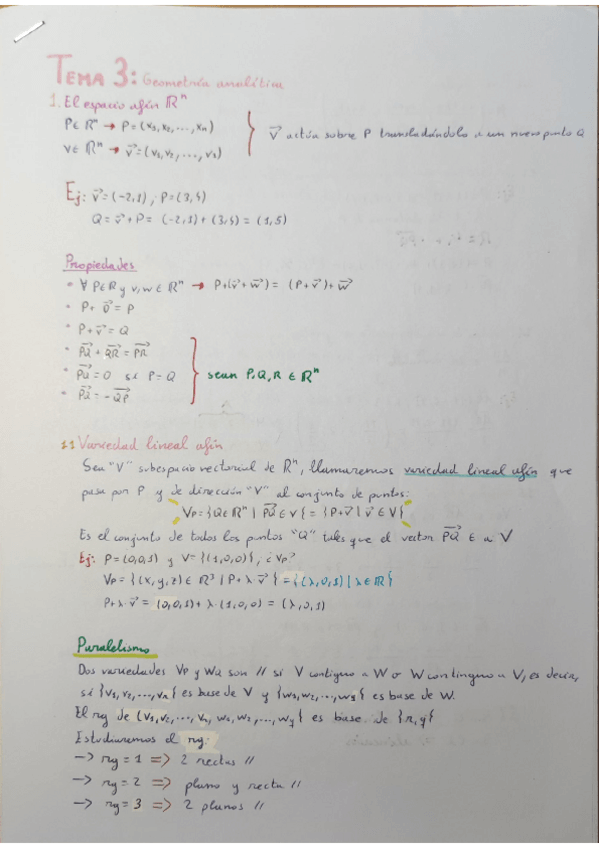 TEMA 3: Geometría analítica
1. El espacio afín ℝⁿ
P∈ℝⁿ → P=(x₁,x₂,...,xₙ)
v∈ℝⁿ → v⃗=(v₁,v₂,...,v₃)
v⃗ actúa sobre P transladándolo a un nuevo punto Q
Ej: v⃗=(-2,1), P=(3,4)
Q=v⃗+P= (-2,1)+(3,4)=(1,5)
Propiedades
• ∀ P∈R y v,w∈ℝⁿ → P+(v⃗+w⃗) = (P+v⃗)+w⃗
• P+ 0⃗ = P
• P+v⃗ = Q
• PQ⃗ + QR⃗ = PR⃗
• PQ⃗ = 0 si P=Q
• PQ⃗ = -QP⃗
sean P,Q,R ∈ ℝⁿ
1.1 Variedad lineal afín
Sea "V" subespacio vectorial de ℝⁿ, llamaremos variedad lineal afín que
pasa por P y de dirección "V" al conjunto de puntos:
Vp={Q∈ℝⁿ | PQ⃗ ∈ V} = {P+v⃗ | v⃗ ∈ V}
Es el conjunto de todos los puntos "Q" tales que el vector PQ⃗ ∈ a V
Ej: P=(0,0,1) y V={(1,0,0)}, ¿Vp?
Vp={(x,y,z)∈ℝ³ | P+λ·v⃗} = {(λ,0,1) | λ∈ℝ}
P+λ·v⃗ = (0,0,1)+λ·(1,0,0) = (λ,0,1)
Paralelismo
Dos variedades Vp y WQ son // si V contiguo a W o W continguo a V, es decir,
si {v₁,v₂,...,vₙ} es base de V y {w₁,w₂,...,wy} es base de W.
El rg de (v₁,v₂,..., vₙ, w₁,w₂,...,wy} es base de {n,y}
Estudiaremos el rg:
→ rg=1 => 2 rectas //
→ rg=2 => plano y recta //
→ rg=3 => 2 planos //